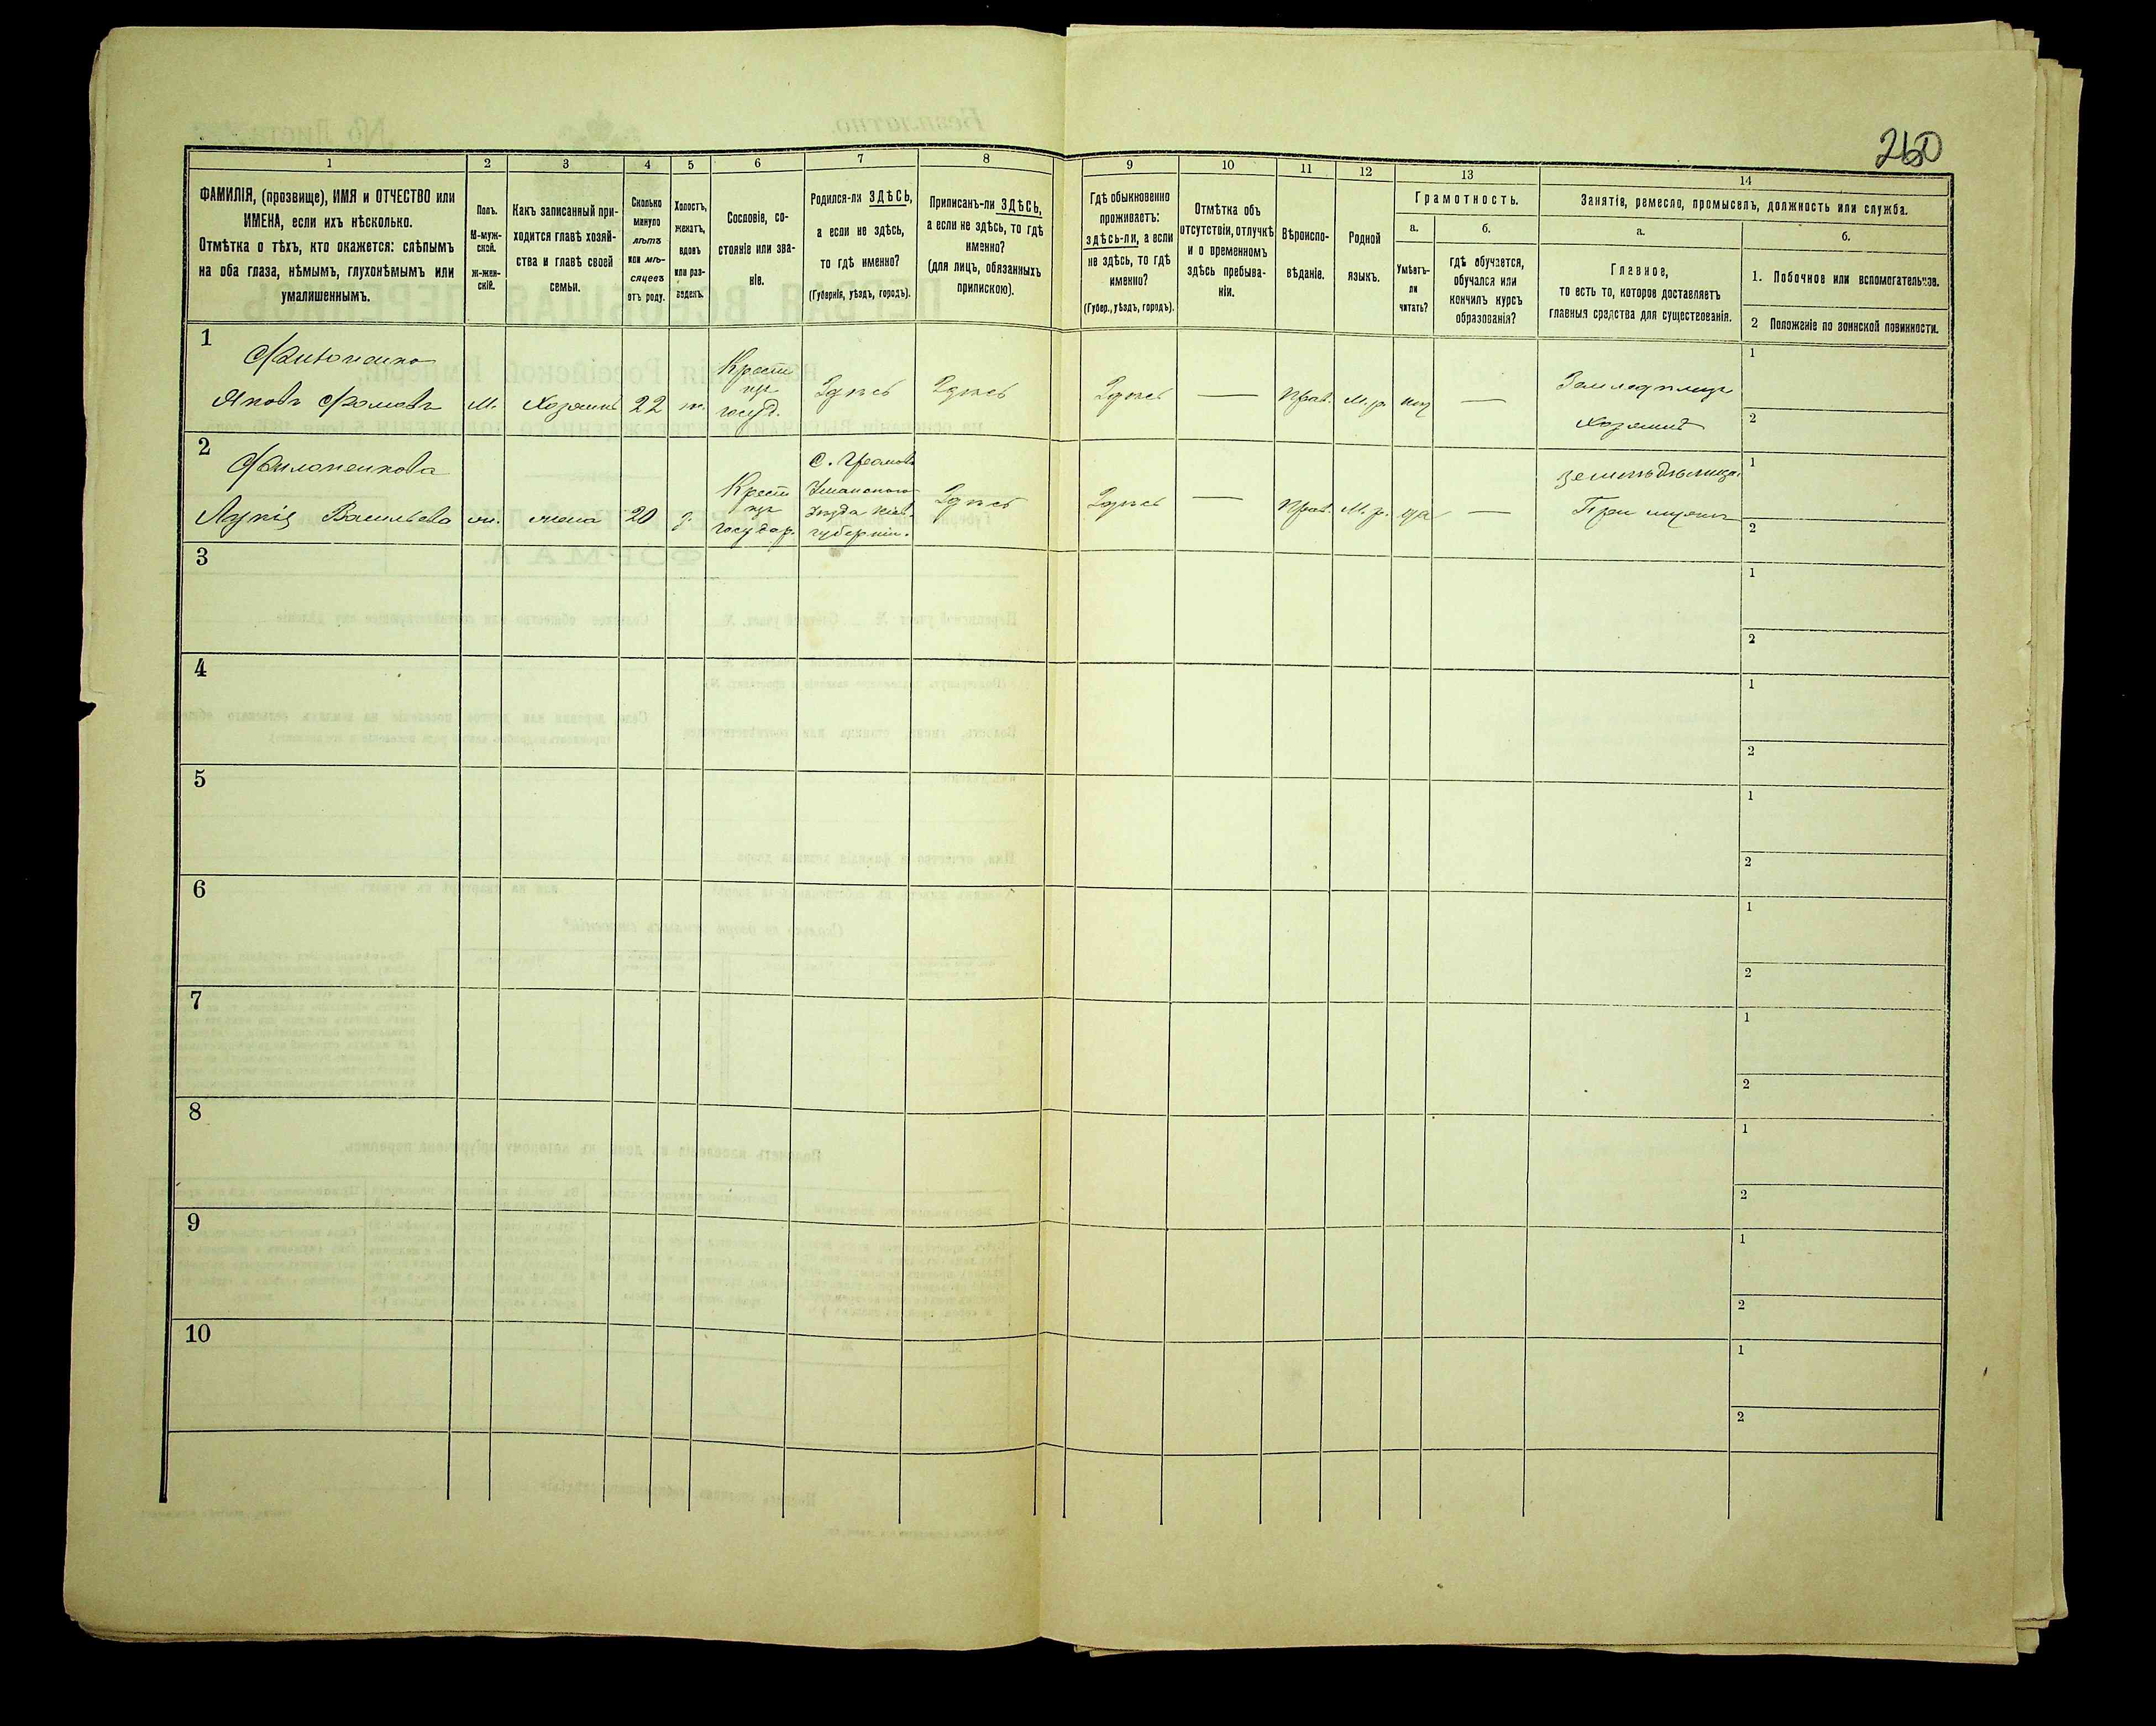 260
1
2
3
4
5
6
7
8
9
10
11
12
13
14
ФАМИЛІЯ, (прозвище), ИМЯ и ОТЧЕСТВО или
ИМЕНА, если ихъ нѣсколько.
Отмѣтка о тѣхъ, кто окажется: слѣпымъ
на оба глаза, нѣмымъ, глухонѣмымъ или
умалишеннымъ.
Полъ.
М-муж-
ской.
Ж-жен-
скій.
Какъ записанный при-
ходится главѣ хозяй-
ства и главѣ своей
семьи.
Сколько
минуло
лѣтъ
или мѣ-
сяцевъ
отъ роду.
Холостъ,
женатъ,
вдовъ
или раз-
веденъ.
Сословіе, со-
стояніе или зва-
ніе.
Родился-ли ЗДѢСЬ,
а если не здѣсь,
то гдѣ именно?
(Губернія, уѣздъ, городъ).
Приписанъ-ли ЗДѢСЬ,
а если не здѣсь, то гдѣ
именно?
(для лицъ, обязанныхъ
припискою).
Гдѣ обыкновенно
проживаетъ:
здѣсь-ли, а если
не здѣсь, то гдѣ
именно?
(Губер., уѣздъ, городъ).
Отмѣтка объ
отсутствіи, отлучкѣ
и о временномъ
здѣсь пребыва-
ніи.
Вѣроиспо-
вѣданіе.
Родной
языкъ.
Грамотность.
а.
Умѣетъ-
ли
читать?
б.
гдѣ обучается,
обучался или
кончилъ курсъ
образованія?
Занятіе, ремесло, промыселъ, должность или служба.
а.
Главное,
то есть то, которое доставляетъ
главныя средства для существованія.
б.
1. Побочное или вспомогательное.
2 Положеніе по воинской повинности.
1
Яковъ
М.
Хозяинъ
22
Крест
госуд.
Здѣсь
Здѣсь
Здѣсь
—
Прав.
М. р.
—
Земледѣлецъ
Хозяинъ
1
2
2
Васильева
ж.
жена
20
Крест
государ.
Уманского
уѣзда Кіев.
губерніи.
Здѣсь
Здѣсь
—
Прав.
М. р.
—
При мужѣ
1
2
3
1
2
4
1
2
5
1
2
6
1
2
7
1
2
8
1
2
9
1
2
10
1
2